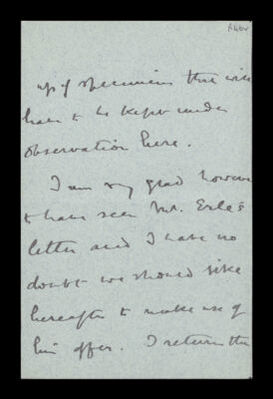 up of specimens that will
have to be kept under
observation here.
I am very glad however
to have seen Mr. Erle's
letter and I have no
doubt we should like
hereafter to make use of
his offer. I return the